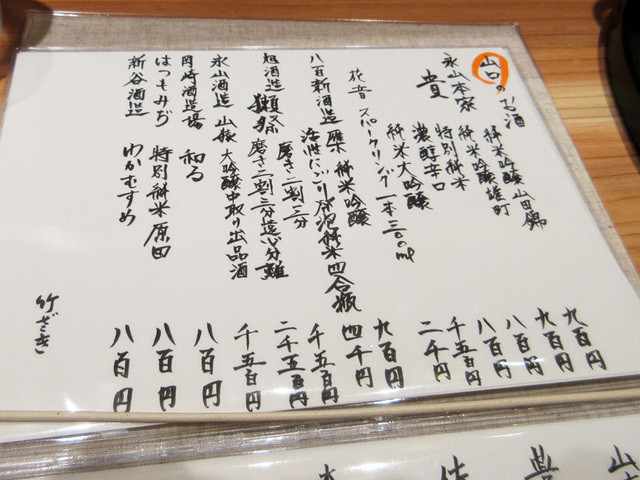 山口のお酒
純米吟醸山田錦 九百円
純米吟醸雄町 九百円
永山本家 特別純米 八百円
貴 濃醇辛口 八百円
純米大吟醸 千五百円
花音 スパークリング 一本三〇〇ml 二千円
八百新酒造 雁木 純米吟醸 九百円
活性にごり発泡純米四合瓶 四千円
旭酒造 獺祭 磨き二割三分 千五百円
磨き二割三分遠心分離 二千五百円
永山酒造 山猿 大吟醸中取り出品酒 千五百円
岡崎酒造場 和る 八百円
はつもみぢ 特別純米 原田 八百円
新谷酒造 わかむすめ 八百円
竹ざき